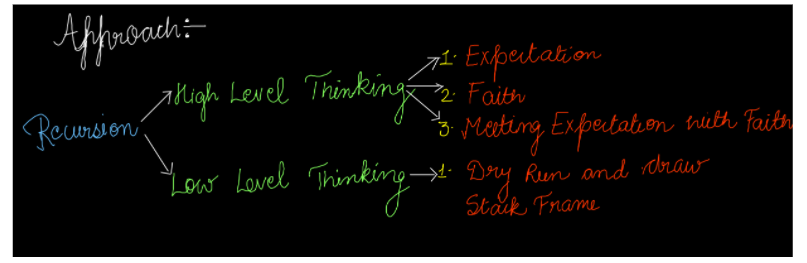 Approach:-
1. Expectation
High Level Thinking
2. Faith
Recursion
3. Meeting Expectation with Faith
Low Level Thinking
1. Dry Run and draw
Stack Frame